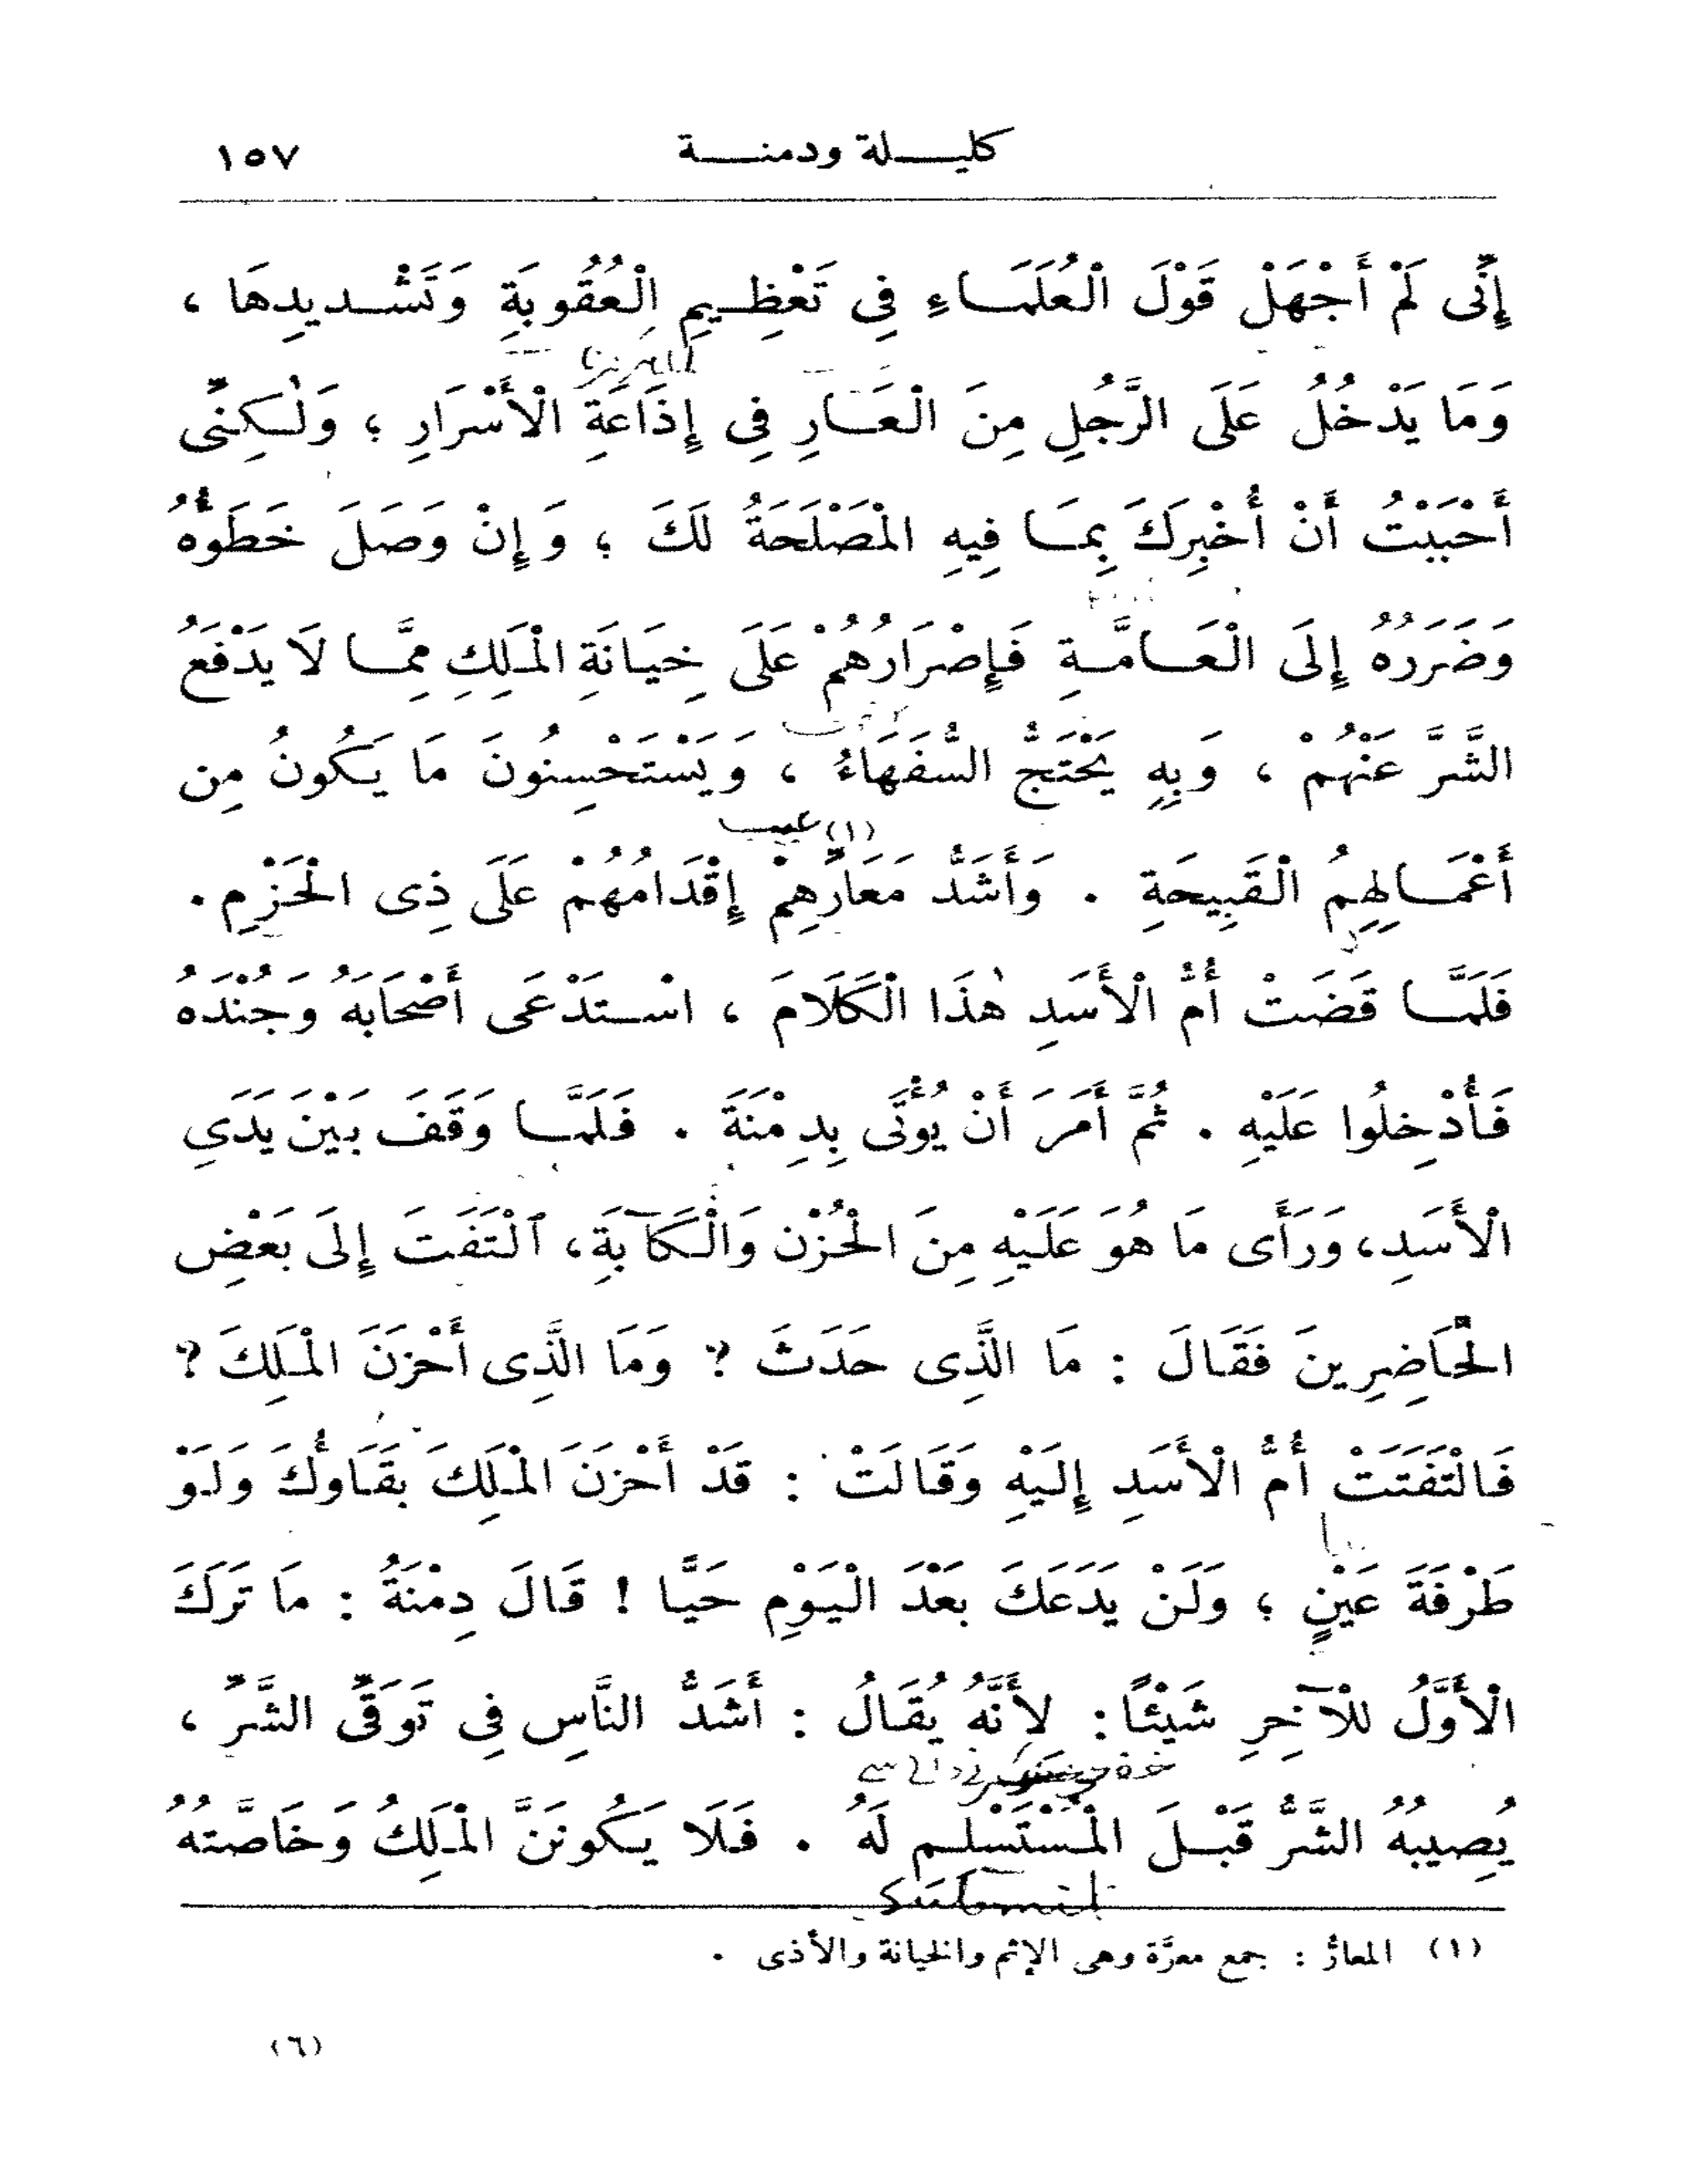 كليلة ودمنة ١٥٧
إِنِّى لَمْ أَجْهَلْ قَوْلَ الْعُلَمَاءِ فِى تَعْظِيمِ الْعُقُوبَةِ وَتَشْدِيدِهَا ،
وَمَا يَدْخُلُ عَلَى الرَّجُلِ مِنَ الْعَارِ فِى إِذَاعَةِ الْأَسْرَارِ ؛ وَلٰكِنِّى
أَحْبَبْتُ أَنْ أُخْبِرَكَ بِمَا فِيهِ الْمَصْلَحَةُ لَكَ ؛ وَإِنْ وَصَلَ خَطَؤُهُ
وَضَرَرُهُ إِلَى الْعَامَّةِ فَإِصْرَارُهُمْ عَلَى خِيَانَةِ الْمَلِكِ مِمَّا لَا يَدْفَعُ
الشَّرَّ عَنْهُمْ ، وَبِهِ يَحْتَجُّ السُّفَهَاءُ ، وَيَسْتَحْسِنُونَ مَا يَكُونُ مِن
(١) عيب
أَعْمَالِهِمُ الْقَبِيحَةِ . وَأَشَدُّ مَعَارِّهِمْ إِقْدَامُهُمْ عَلَى ذِى الْحَزْمِ .
فَلَمَّا قَضَتْ أُمُّ الْأَسَدِ هٰذَا الْكَلَامَ ، اسْتَدْعَى أَصْحَابَهُ وَجُنْدَهُ
فَأُدْخِلُوا عَلَيْهِ . ثُمَّ أَمَرَ أَنْ يُؤْتَى بِدِمْنَةَ . فَلَمَّا وَقَفَ بَيْنَ يَدَىِ
الْأَسَدِ، وَرَأَى مَا هُوَ عَلَيْهِ مِنَ الْحُزْنِ وَالْكَآبَةِ، ٱلْتَفَتَ إِلَى بَعْضِ
الْحَاضِرِينَ فَقَالَ : مَا الَّذِى حَدَثَ ? وَمَا الَّذِى أَحْزَنَ الْمَلِكَ ?
فَالْتَفَتَتْ أُمُّ الْأَسَدِ إِلَيْهِ وَقَالَتْ : قَدْ أَحْزَنَ الْمَلِكَ بَقَاؤُكَ وَلَوْ
طَرْفَةَ عَيْنٍ ؛ وَلَنْ يَدَعَكَ بَعْدَ الْيَوْمِ حَيًّا ! قَالَ دِمْنَةُ : مَا تَرَكَ
الْأَوَّلُ لِلْآخِرِ شَيْئًا : لِأَنَّهُ يُقَالُ : أَشَدُّ النَّاسِ فِى تَوَقِّى الشَّرِّ ،
يُصِيبُهُ الشَّرُّ قَبْلَ الْمُسْتَسْلِمِ لَهُ . فَلَا يَكُونَنَّ الْمَلِكُ وَخَاصَّتُهُ
(١) المعارُّ : جمع معرَّة وهى الإثم والخيانة والأذى .
(٦)